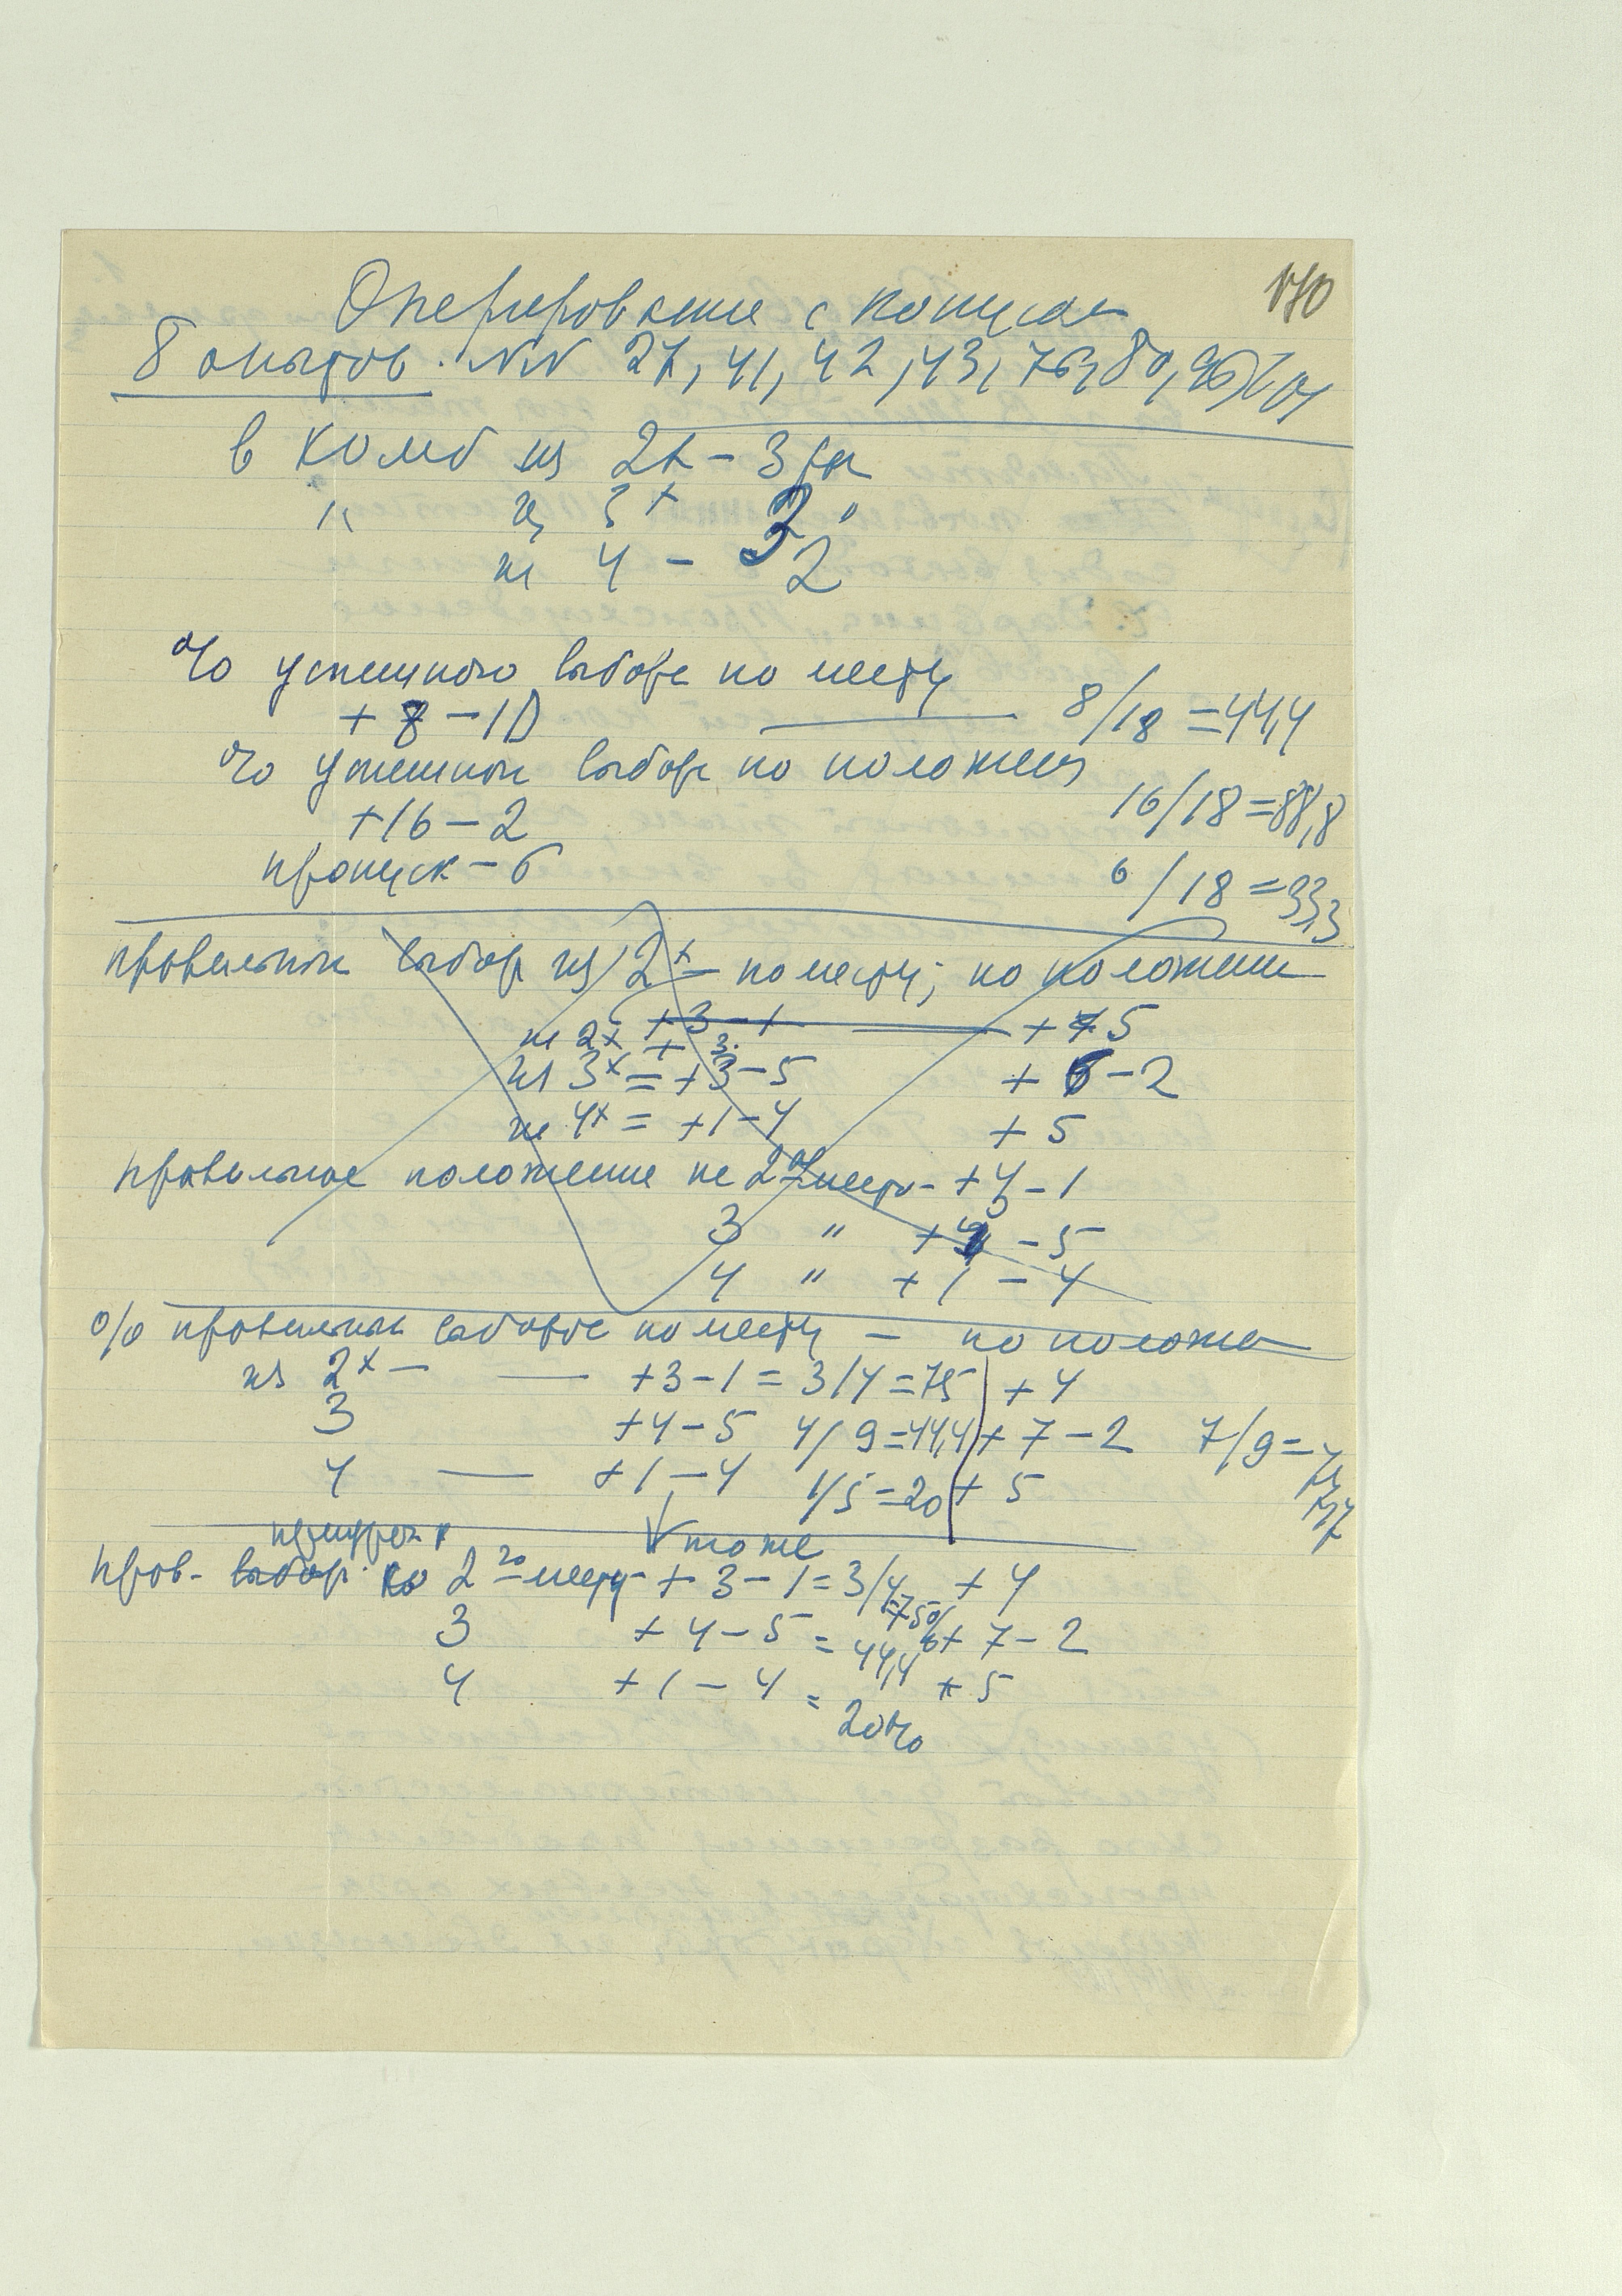 170
Оперирование с конусом
8 опытов. NN 27, 41, 42, 43, 76, 80, 96, 101
в комб из 2х - 3
" из 3х 3 "
из 4 - 2
% успешного выбора по месту
+ 8 - 10 8/18 = 44,4
% успешн выбора по положен
+16 - 2 16/18 = 88,8
пропуск - 6 6/18 = 33,3
правильн выбор из 2х - по месту; по положени
+ 3 - 1 + 5
из 2х + 3
из 3х = +3 - 5 + 6 - 2
из 4х = +1 - 4 + 5
правильное положение на 2ое место - +4 - 1
3 " + - 5
4 " + 1 - 4
% правильных выборов по месту - по положе
из 2х - +3 - 1 = 3/4 = 75 + 4
3 +4 - 5 4/9 = 44,4 + 7 - 2 7/9 =
4 +1 - 4 1/5 = 20 + 5
тоже
прав. выбор 2го месту + 3 - 1 = 3/4 = 75% + 4
3 + 4 - 5 = 44,4 + 7 - 2
4 + 1 - 4 = 20% + 5